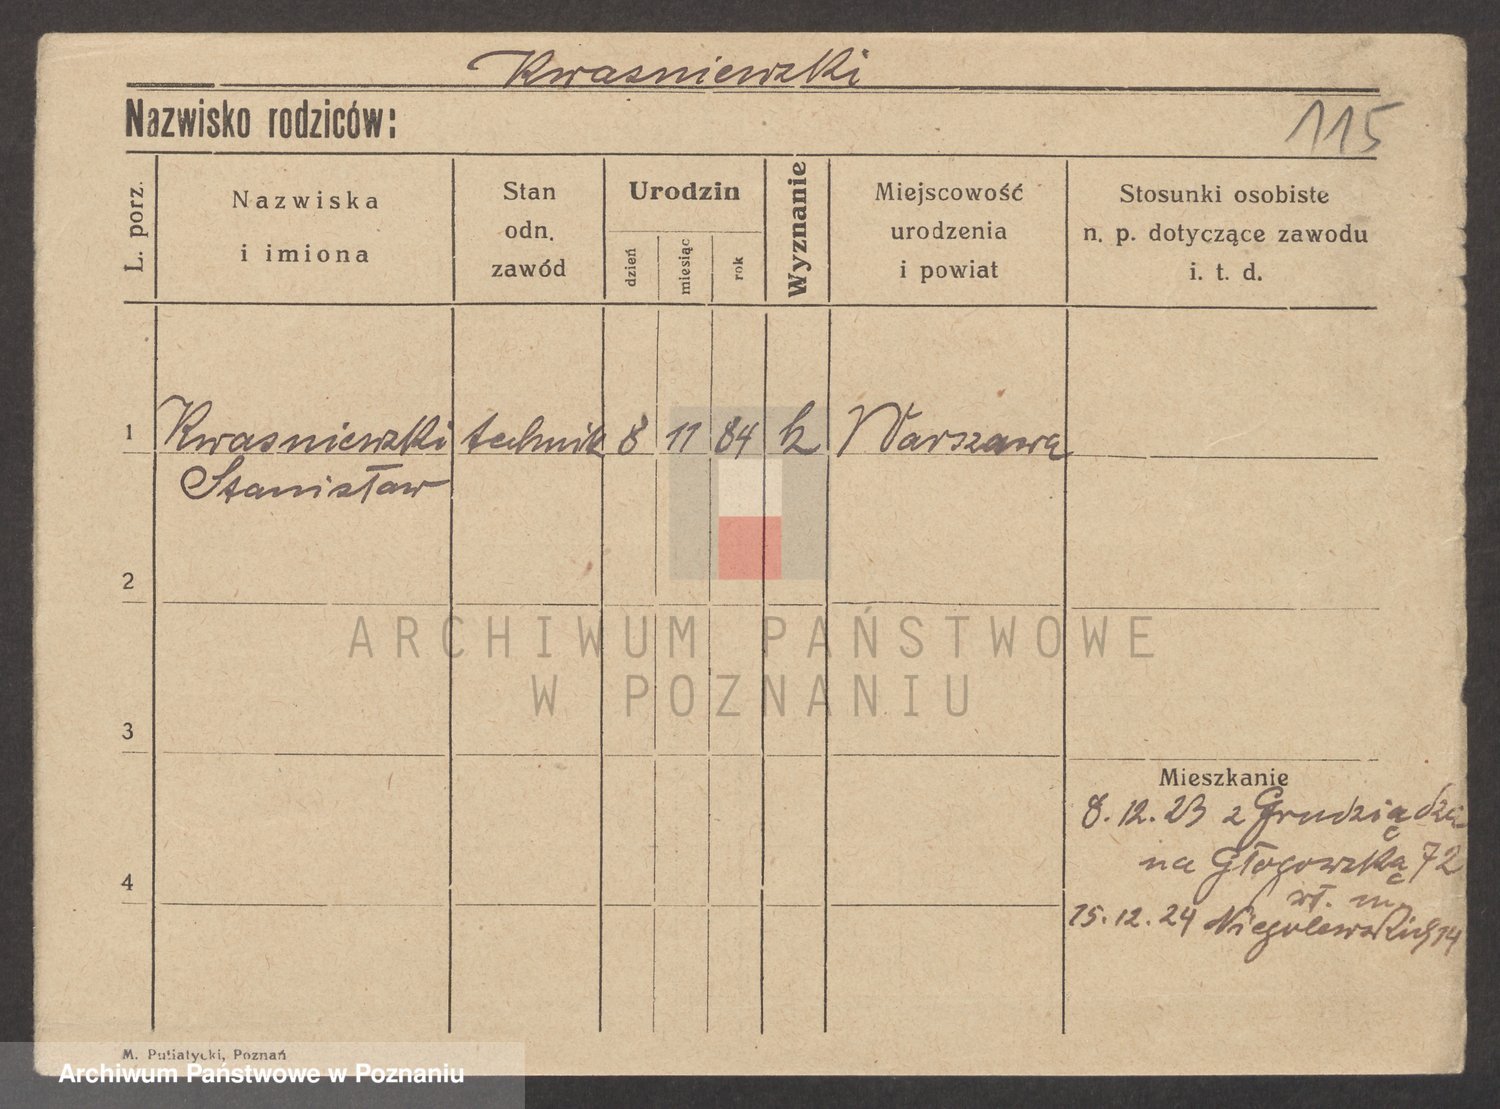 Kwasniewski
Nazwisko rodziców:
115
L. porz.
Nazwiska
i imiona
Stan
odn.
zawód
Urodzin
dzień
miesiąc
rok
Wyznanie
Miejscowość
urodzenia
i powiat
Stosunki osobiste
n. p. dotyczące zawodu
i. t. d.
1 Kwasniewski technik 8 11 84 k Warszawa
Stanisław
2
ARCHIWUM PAŃSTWOWE
W POZNANIU
3
Mieszkanie
8. 12. 23 z Grudziądza
na Głogowską 72
4
wł. m.
15. 12. 24 Niegolewskich 14
M. Putiatycki, Poznań
Archiwum Państwowe w Poznaniu